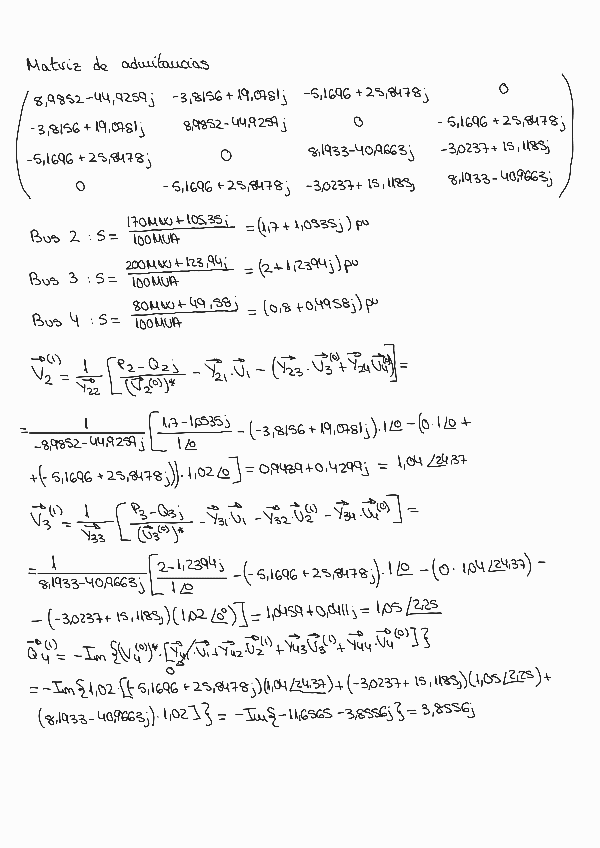 Matriz de admitancias
8,9852-44,9259j -3,8156+19,0781j -5,1696+25,8478j 0
-3,8156+19,0781j 8,9852-44,9259j 0 -5,1696+25,8478j
-5,1696+25,8478j 0 8,1933-40,9663j -3,0237+15,1185j
0 -5,1696+25,8478j -3,0237+15,1185j 8,1933-40,9663j
Bus 2 : S= (170MW+105,35j)/(100MVA) = (1,7+1,0535j) pu
Bus 3 : S= (200MW+123,94j)/(100MVA) = (2+1,2394j) pu
Bus 4 : S= (80MW+49,58j)/(100MVA) = (0,8+0,4958j) pu
V₂⁽¹⁾ = 1/Y₂₂ [(P₂-Q₂j)/(V₂⁽⁰⁾)* - Y₂₁·V₁ - (Y₂₃·V₃⁽⁰⁾+Y₂₄V₄⁽⁰⁾)] =
= 1/(-8,9852-44,9259j) [(1,7-1,0535j)/(1∠0) - (-3,8156+19,0781j)·1∠0 - (0·1∠0 +
+(-5,1696+25,8478j))·1,02∠0] = 0,9489+0,4299j = 1,04∠24,37
V₃⁽¹⁾ = 1/Y₃₃ [(P₃-Q₃j)/(V₃⁽⁰⁾)* - Y₃₁V₁ - Y₃₂V₂⁽¹⁾ - Y₃₄·V₄⁽⁰⁾] =
= 1/(8,1933-40,9663j) [(2-1,2394j)/(1∠0) - (-5,1696+25,8478j)·1∠0 - (0·1,04∠24,37) -
-(-3,0237+15,1185j)(1,02∠0°)] = 1,0459+0,0411j = 1,05∠2,25
Q₄⁽¹⁾ = -Im{(V₄⁽⁰⁾)*·[Y₄₁·V₁+Y₄₂V₂⁽¹⁾+Y₄₃V₃⁽¹⁾+Y₄₄·V₄⁽⁰⁾]}
0
= -Im{1,02·[(-5,1696+25,8478j)(1,04∠24,37)+(-3,0237+15,1185j)(1,05∠2,25)+
(8,1933-40,9663j)·1,02]} = -Im{-11,6565-3,8556j} = 3,8556j